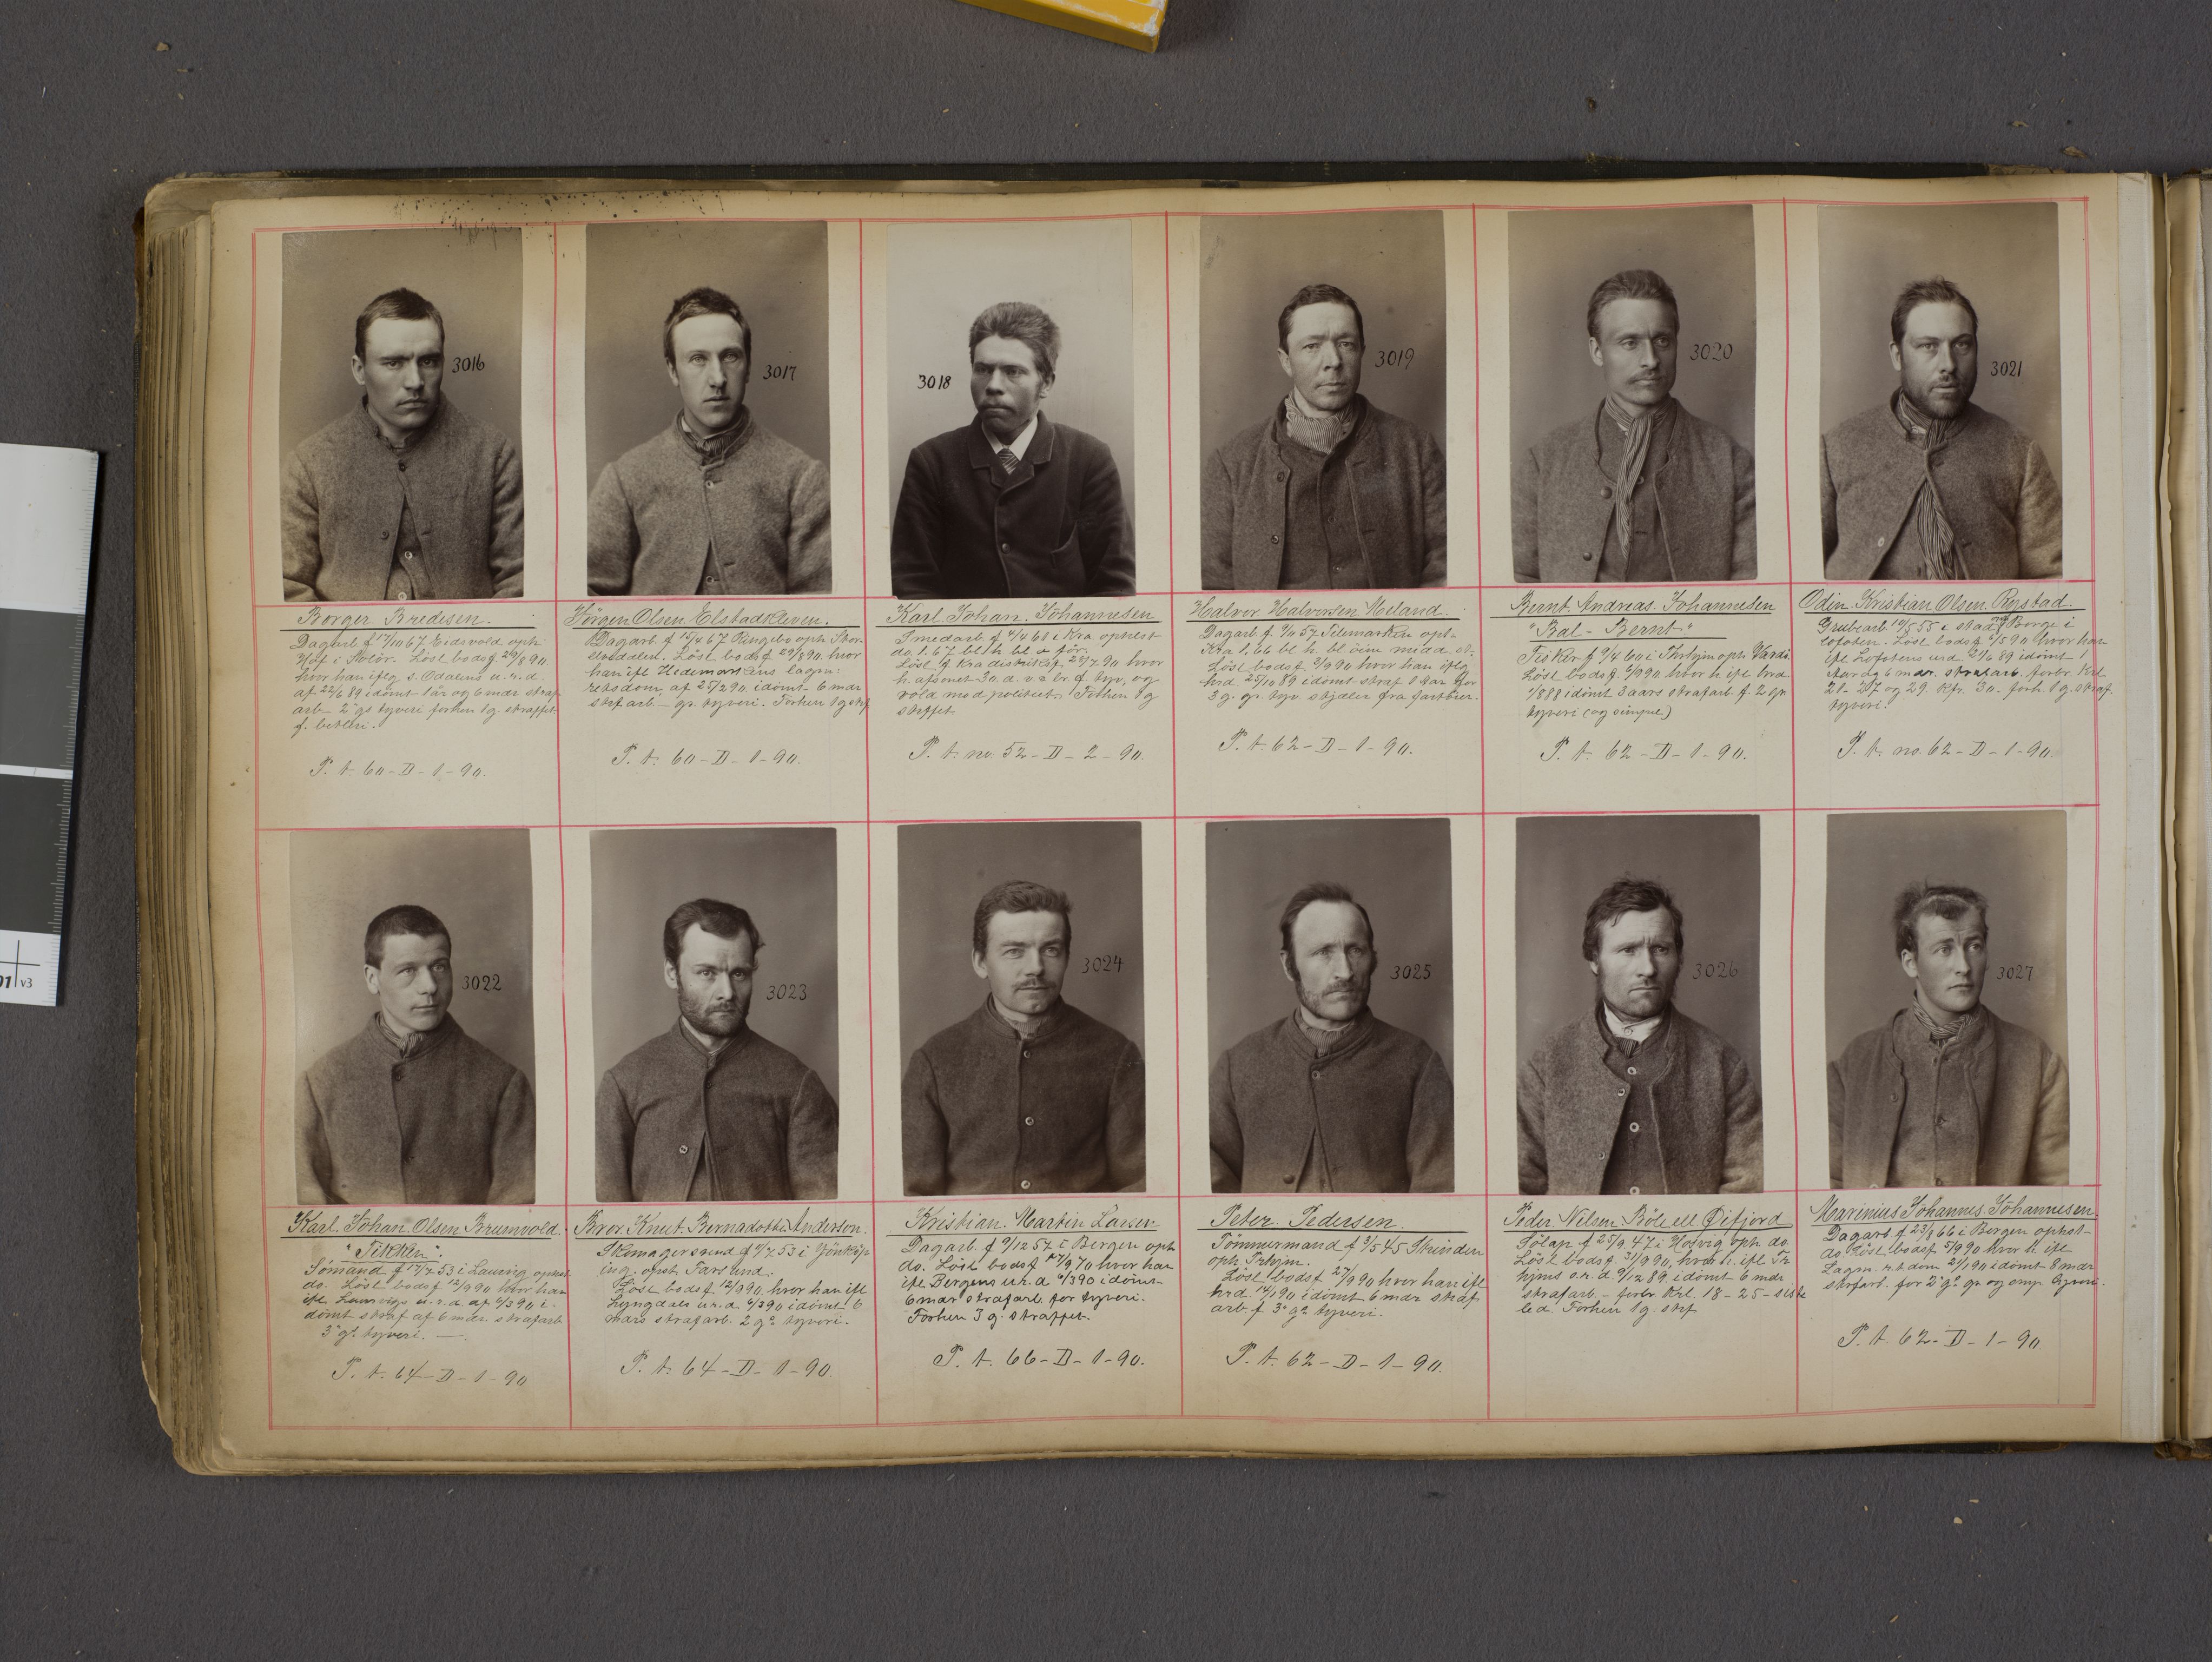 3016
3017
3018
3019
3020
3021
Borger Bredesen.
Dagarb f 17/10 67 Eidsvold oph
Hof i Solör. Löst bods f. 29/8 90
hvor han iflg s. Odalens u. r. d.
af 22/6 89 idömt 1 år og 6 mdr straf
arb 2 gs tyveri forhen 1 g. straffet
f. betleri.
P. t. 60 - D - 1 - 90.
Jörgen Olsen Elstadkleven.
Dagarb. f 15/4 67 Ringebo oph Stor-
elvedalen. Löst bods f 29/8 90. hvor
han ifl Hedemarkens lagm:
retsdom, af 25/2 90 idömt 6 mdr
strf arb - gr. tyveri. Forhen 1 g strf
P. t. 60 - D - 1 - 90.
Karl Johan Johannesen
Smedarb f 4/4 68 i Kra ophest
do. 1.67 bl h bl ö för.
Löst f. Kra distriktsf. 28/7 90 hvor
h. afsonet 30 d. v & br. f tyv, og
vold mod politiet. Forhen 1 g
strffet
P. t. no. 52 - D - 2 - 90.
Halvor Halvorsen Meland.
Dagarb f. 9/11 57 Telemarken opt-
Kra 1,66 bl h. bl öine midd. st.
Löst bods f 3/9 90 hvor han iflg
hrd. 25/10 89 idömt straf 1 aar for
3 g. gr. tyv stjæler fra fartöier.
P. t. 62 - D - 1 - 90.
Bernt Andreas Johannesen
"Bal - Bernt"
Fisker f 9/4 60 i Thrhjm oph Vardö
Löst bods f. 6/9 90 hvor h. ifl hrd
1/8 88 idömt 3 aars strafarb f. 2 gr
tyveri (og simpel.)
P. t. 62 - D - 1 - 90.
Odin Kristian Olsen Rørstad.
Grubearb. 10/5 55 i Borge i
Lofoten. Löst bods f 6/5 90 hvor han
ifl Lofotens urd 21/6 89 idömt 1
Aar og 6 mdr. strafarb. forbr. Krl
21 - 27 og 29. Kfr. 30. forh. 1 g. straf.
tyveri.
P. t. no. 62 - D - 1 - 90.
3022
3023
3024
3025
3026
3027
Karl Johan Olsen Brunvold.
"Tikken".
Sömand f 17/7 53 i Laurvig ophst
do. Löst bods f 12/9 90 hvor han
ifl Laurvigs u. r. d. af 6/3 90 i-
dömt straf af 6 mdr. strafarb
3 g. tyveri.
P. t. 64 - D - 1 - 90
Bror Knut Bernadotte Anderson.
Skomagersvend f 9/7 53 i Jönköp-
ing. opst Farsund.
Löst bods f 12/9 90. hvor han ifl
Lyngdals u.r.d. 6/3 90 idömt 6
mdrs strafarb. 2 gs tyveri.
P. t. 64 - D - 1 - 90.
Kristian Martin Larsen
Dagarb. f 9/12 57 i Bergen oph
do. Löst bods f 17/9 90 hvor han
ifl Bergens u.r.d. 6/3 90 idömt
6 mdr strafarb. for tyveri.
Forhen 3 g. straffet.
P. t. 66 - D - 1 - 90.
Peter Pedersen.
Tömmermand f 3/5 45 Strinden
oph. Trhjm.
Löst bods f 27/9 90 hvor han ifl
hrd. 14/1 90 idömt 6 mdr straf
arb. f 3 gs tyveri.
P. t. 62 - D - 1 - 90.
Peder Nilsen Böle ell Öifjord
Sölap f 25/9 47 i Hosvig oph do.
Löst bods f. 31/9 90, hvor h. ifl Tr
hjms s.r.d. 9/12 89 idömt 6 mdr
strafarb - forbr Krl. 18 - 25 - siste
led. Forhen 1 g. strf
Marinius Johannes Johannesen.
Dagarb f 23/8 66 i Bergen ophst-
do. Löst bods f 5/9 90 hvor h. ifl
Lagm. r.t dom 21/1 90 idömt 8 mdr
strfarb. for 2 gs gr og smp. tyveri.
P. t. 62 - D - 1 - 90
01 v3